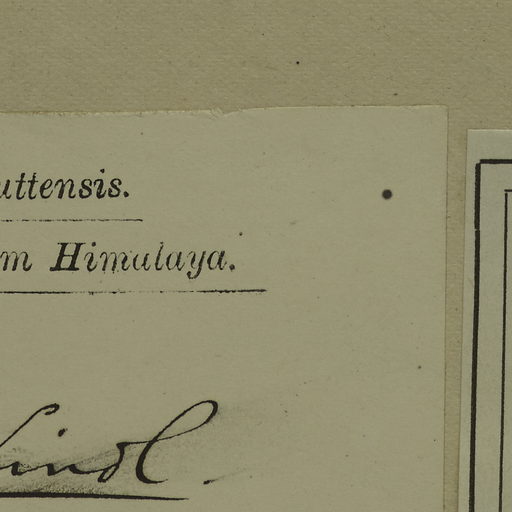 uttensis.
m Himalaya.
Lindl.